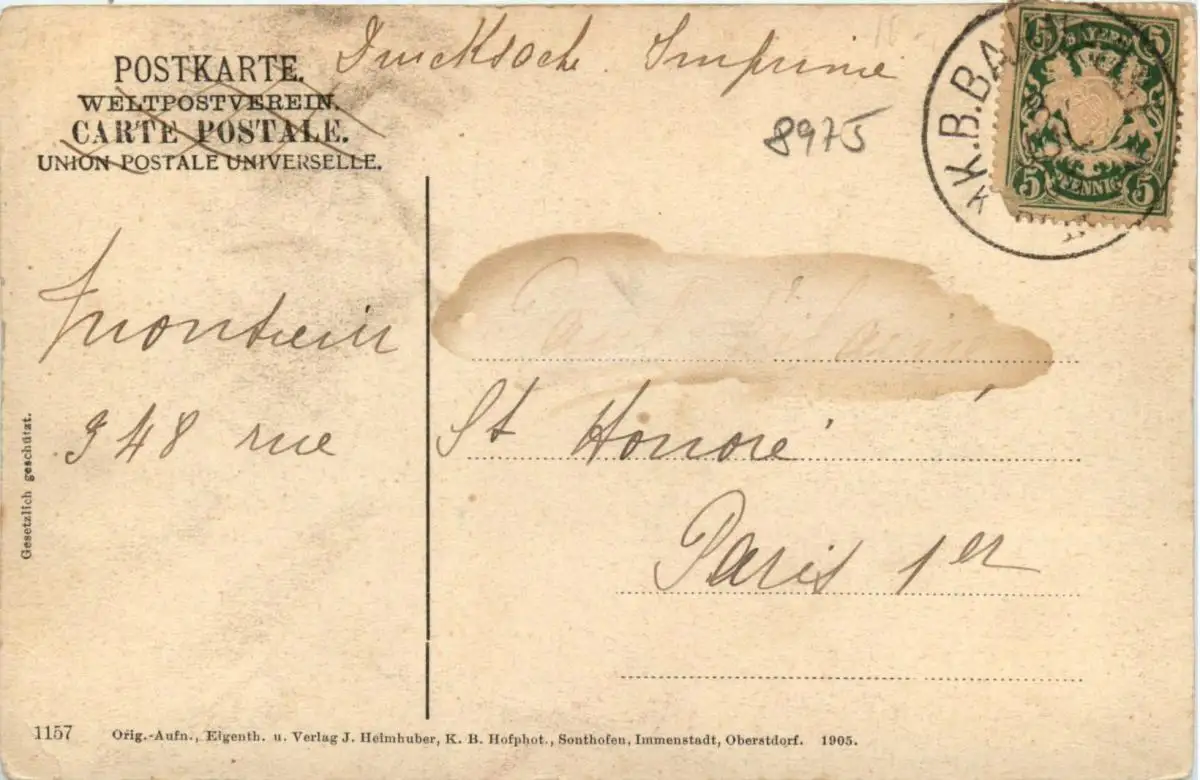 POSTKARTE.
WELTPOSTVEREIN.
CARTE POSTALE.
UNION POSTALE UNIVERSELLE.
Drucksache. Imprimé
8975
K.B.BA
5 BAYERN 5
5 PFENNIG 5
348 rue
St Honoré
Paris 1er
Gesetzlich geschützt.
1157 Orig.-Aufn., Eigenth. u. Verlag J. Heimhuber, K. B. Hofphot., Sonthofen, Immenstadt, Oberstdorf. 1905.